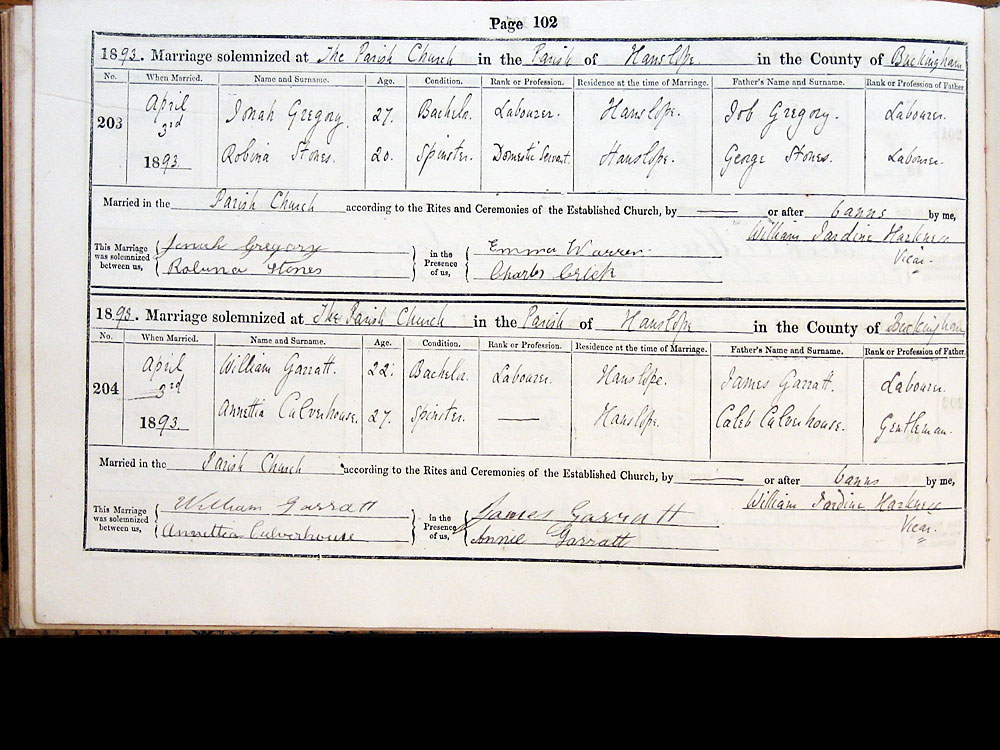 Page 102
1893. Marriage solemnized at The Parish Church in the Parish of Hanslope in the County of Buckingham
No. When Married. Name and Surname. Age. Condition. Rank or Profession. Residence at the time of Marriage. Father's Name and Surname. Rank or Profession of Father.
203 April 3rd 1893. Jonah Gregory. 27. Bachelor. Labourer. Hanslope. Job Gregory. Labourer.
Robina Stones. 20. Spinster. Domestic Servant. Hanslope. George Stones. Labourer.
Married in the Parish Church according to the Rites and Ceremonies of the Established Church, by —— or after banns by me,
William Jardine Harkness
Vicar.
This Marriage was solemnized between us, Jonah Gregory in the Presence of us, Emma Warren
Robina Stones Charles
1893. Marriage solemnized at The Parish Church in the Parish of Hanslope in the County of Buckingham
No. When Married. Name and Surname. Age. Condition. Rank or Profession. Residence at the time of Marriage. Father's Name and Surname. Rank or Profession of Father.
204 April 3rd 1893. William Garratt. 22. Bachelor. Labourer. Hanslope. James Garratt. Labourer.
Annettia Culverhouse. 27. Spinster. —— Hanslope. Caleb Culverhouse. Gentleman.
Married in the Parish Church according to the Rites and Ceremonies of the Established Church, by —— or after banns by me,
William Jardine Harkness
Vicar.
This Marriage was solemnized between us, William Garratt in the Presence of us, James Garratt
Annettia Culverhouse Annie Garratt